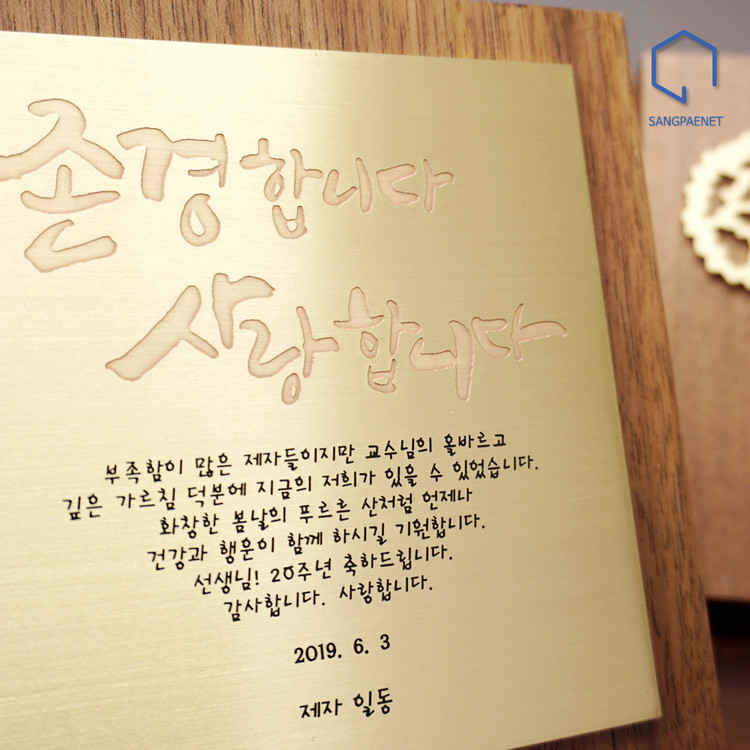 SANGPAENET
존경합니다
사랑합니다
부족함이 많은 제자들이지만 교수님의 올바르고
깊은 가르침 덕분에 지금의 저희가 있을 수 있었습니다.
화창한 봄날의 푸르른 산처럼 언제나
건강과 행운이 함께 하시길 기원합니다.
선생님! 20주년 축하드립니다.
감사합니다. 사랑합니다.
2019. 6. 3
제자 일동